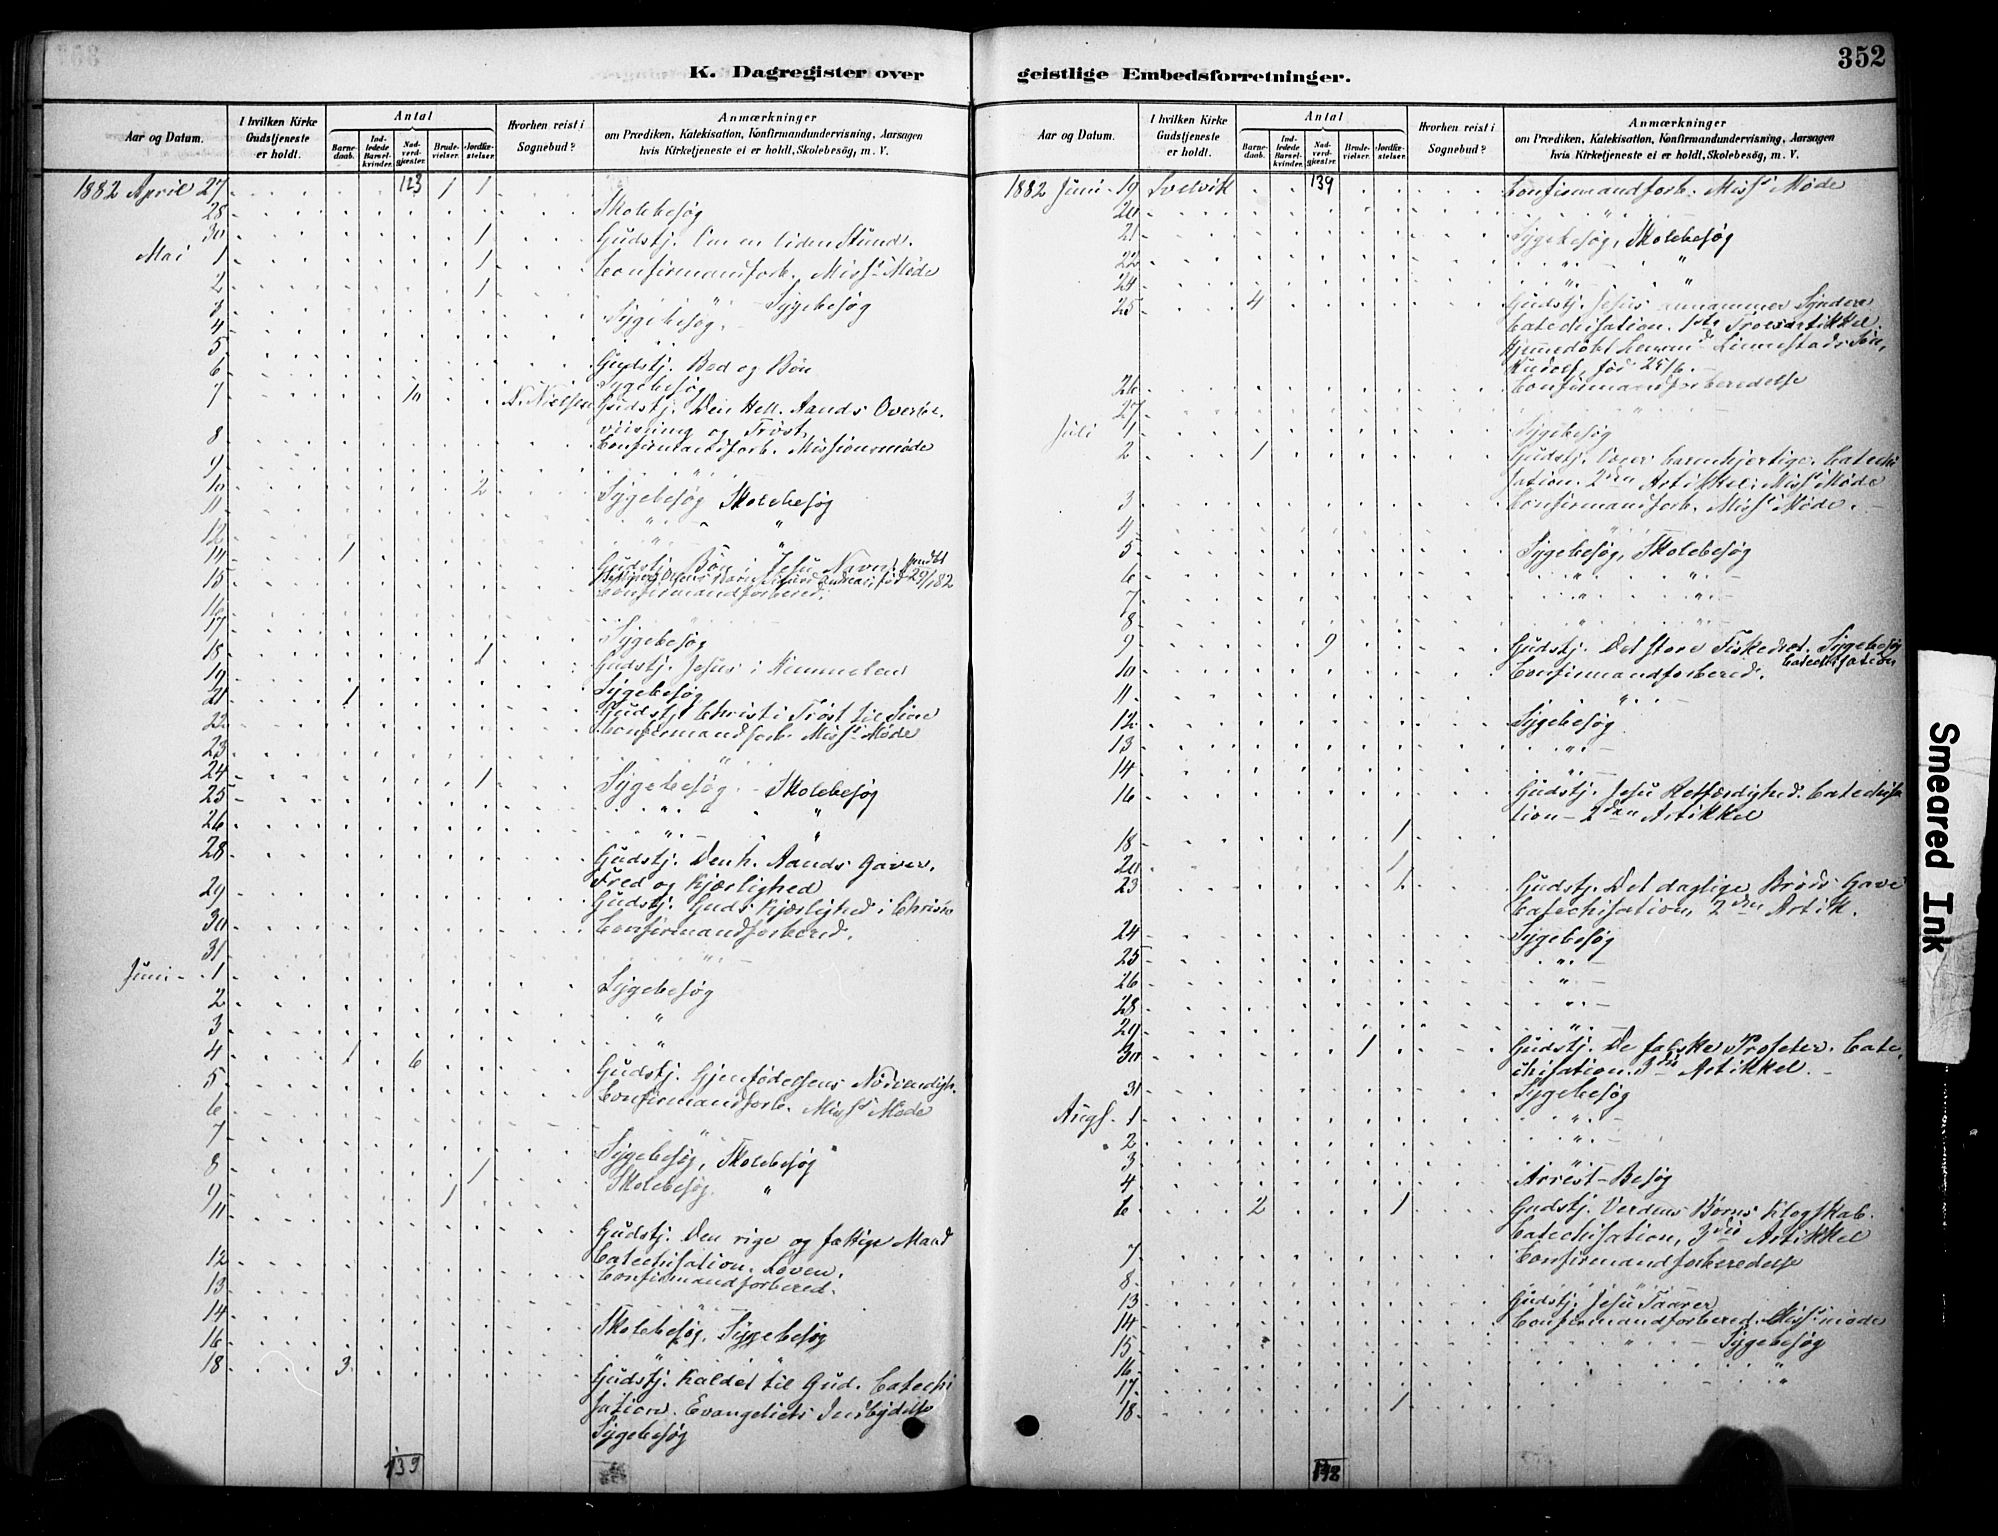 352
K. Dagregister over
geistlige Embedsforretninger.
Aar og Datum.
I hvilken Kirke Gudstjeneste er holdt.
Antal
Barne-daab.
Ind-ledede Barsel-kvinder.
Nad-verd-gjæster.
Brude-vielser.
Jordfæ-stelser.
Hvorhen reist i Sognebud?
Anmærkninger
om Prædiken, Katekisation, Konfirmandundervisning, Aarsagen
hvis Kirketjeneste ei er holdt, Skolebesög, m. V.
1882 April 27 123 1 1
28 Skolebesøg
30 1 Gudstj. Om en liden Stund.
Mai 1 1 Confirmandforb. Miss. Møde
2 1 " Sygebesøg
3 Sygebesøg
4 "
5 Gudstj. Bed og Bøn
6 Sygebesøg
7 10 N. Nielsen Gudstj. Den Hell. Aands Overbe-
viisning og Trøst
8 Confirmandforb. Missionsmøde
9 "
10 2 Sygebesøg Skolebesøg
11 " "
12 "
14 1 Gudstj. Bøn i Jesu Navn.
15 Confirmandforbered.
16
17 Sygebesøg
18 1 Gudstj. Jesus i Himmelen
19 Sygebesøg
21 1 Gudstj. Christi Trøst til Sine
22 Confirmandforb. Miss. Møde
23 "
24 1 Sygebesøg Skolebesøg
25 " "
26 " "
28 Gudstj. Den h. Aands Gaver.
Fred og Kjærlighed
29 Gudstj. Guds Kjærlighed i Christo
30 Confirmandforbered.
31 "
Juni 1 Sygebesøg
2 "
3 "
4 1 6 Gudstj. Gjenfødelsens Nødvendigh.
5 Confirmandforb. Miss. Møde
6 "
7 Sygebesøg, Skolebesøg
8 1 Skolebesøg "
9 1
11 Gudstj. Den rige og fattige Mand
Catechisation. Loven.
12 Confirmandforbered.
13 "
14 Skolebesøg, Sygebesøg
16 "
18 3 Gudstj. Kaldet til Gud. Catechi
sation. Evangeliets Indbydelse
Sygebesøg
139
Aar og Datum.
I hvilken Kirke Gudstjeneste er holdt.
Antal
Barne-daab.
Ind-ledede Barsel-kvinder.
Nad-verd-gjæster.
Brude-vielser.
Jordfæ-stelser.
Hvorhen reist i Sognebud?
Anmærkninger
om Prædiken, Katekisation, Konfirmandundervisning, Aarsagen
hvis Kirketjeneste ei er holdt, Skolebesög, m. V.
1882 Juni 19 Svelvik 139 Confirmandforb. Miss. Møde
20 "
21 Sygebesøg, Skolebesøg
22 " "
24 " "
25 4 Gudstj. Jesus annammer Syndere
Catechisation. 1ste Troesartikkel.
Hjemmedøbt
26 Confirmandforberedelse
27 "
Juli 1 Sygebesøg
2 1 Gudstj. Værer barmhjertige. Catechi
sation. 2den Artikkel. Miss. Møde
3 Confirmandforb. Miss. Møde.
4 "
5 Sygebesøg, Skolebesøg
6 " "
7 " "
8 " "
9 9 Gudstj. Det store Fiskedræt. Sygebesøg
Catechisation
10 Confirmandforbered.
11 "
12 Sygebesøg
13 "
14 "
16 Gudstj. Jesu Retfærdighed. Catechisa
tion - 2den Artikkel
18 1
20 1
23 1 Gudstj. Det daglige Brøds Gave
Catechisation, 2den Artik.
24 Sygebesøg
25 "
26 "
28 "
29 "
30 1 Gudstj. De falske Profeter. Cate
chisation. 3die Artikkel.
31 Sygebesøg
Augs. 1 "
" 2 "
3 "
4 Arrest-Besøg
6 2 1 Gudstj. Verdens Børns Klogskab.
Catechisation, 3die Artikkel
7 Confirmandforberedelse
8 "
13 Gudstj. Jesu Taarer
14 Confirmandforbered. Miss. møde
15 " Sygebesøg
16 "
17
18 1
148
Smeared Ink